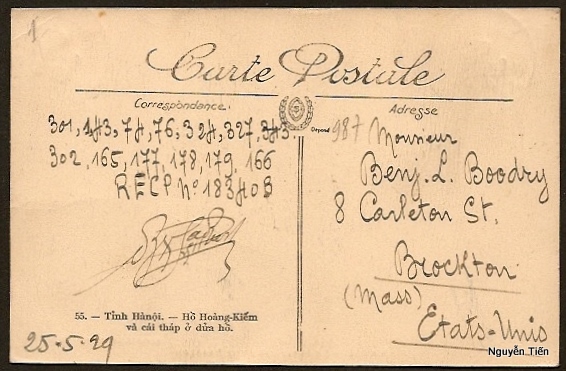 1
Carte Postale
Correspondance.
Adresse
301, 143, 74, 76, 324, 327, 343.
302, 165, 177, 178, 179, 166
RECP Nº 18340B
55. — Tỉnh Hànội. — Hồ Hoàng-Kiếm
và cái tháp ở dửa hồ.
25-5-29
Déposé
987
Monsieur
Benj. L. Boodry
8 Carleton St.
Brockton
(Mass)
États-Unis
Nguyễn Tiến